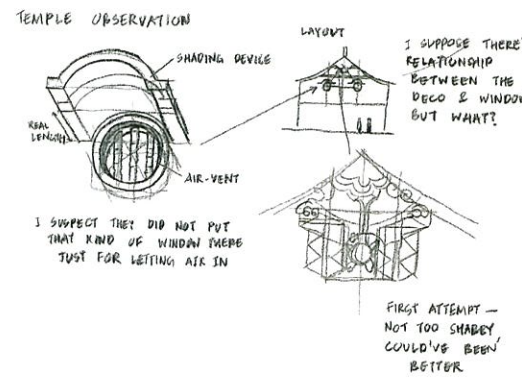 TEMPLE OBSERVATION
SHADING DEVICE
REAL
LENGTH
AIR-VENT
I SUSPECT THEY DID NOT PUT
THAT KIND OF WINDOW THERE
JUST FOR LETTING AIR IN
LAYOUT
I SUPPOSE THERE'
RELATIONSHIP
BETWEEN THE
DECO & WINDOW
BUT WHAT?
FIRST ATTEMPT —
NOT TOO SHABBY
COULD'VE BEEN
BETTER